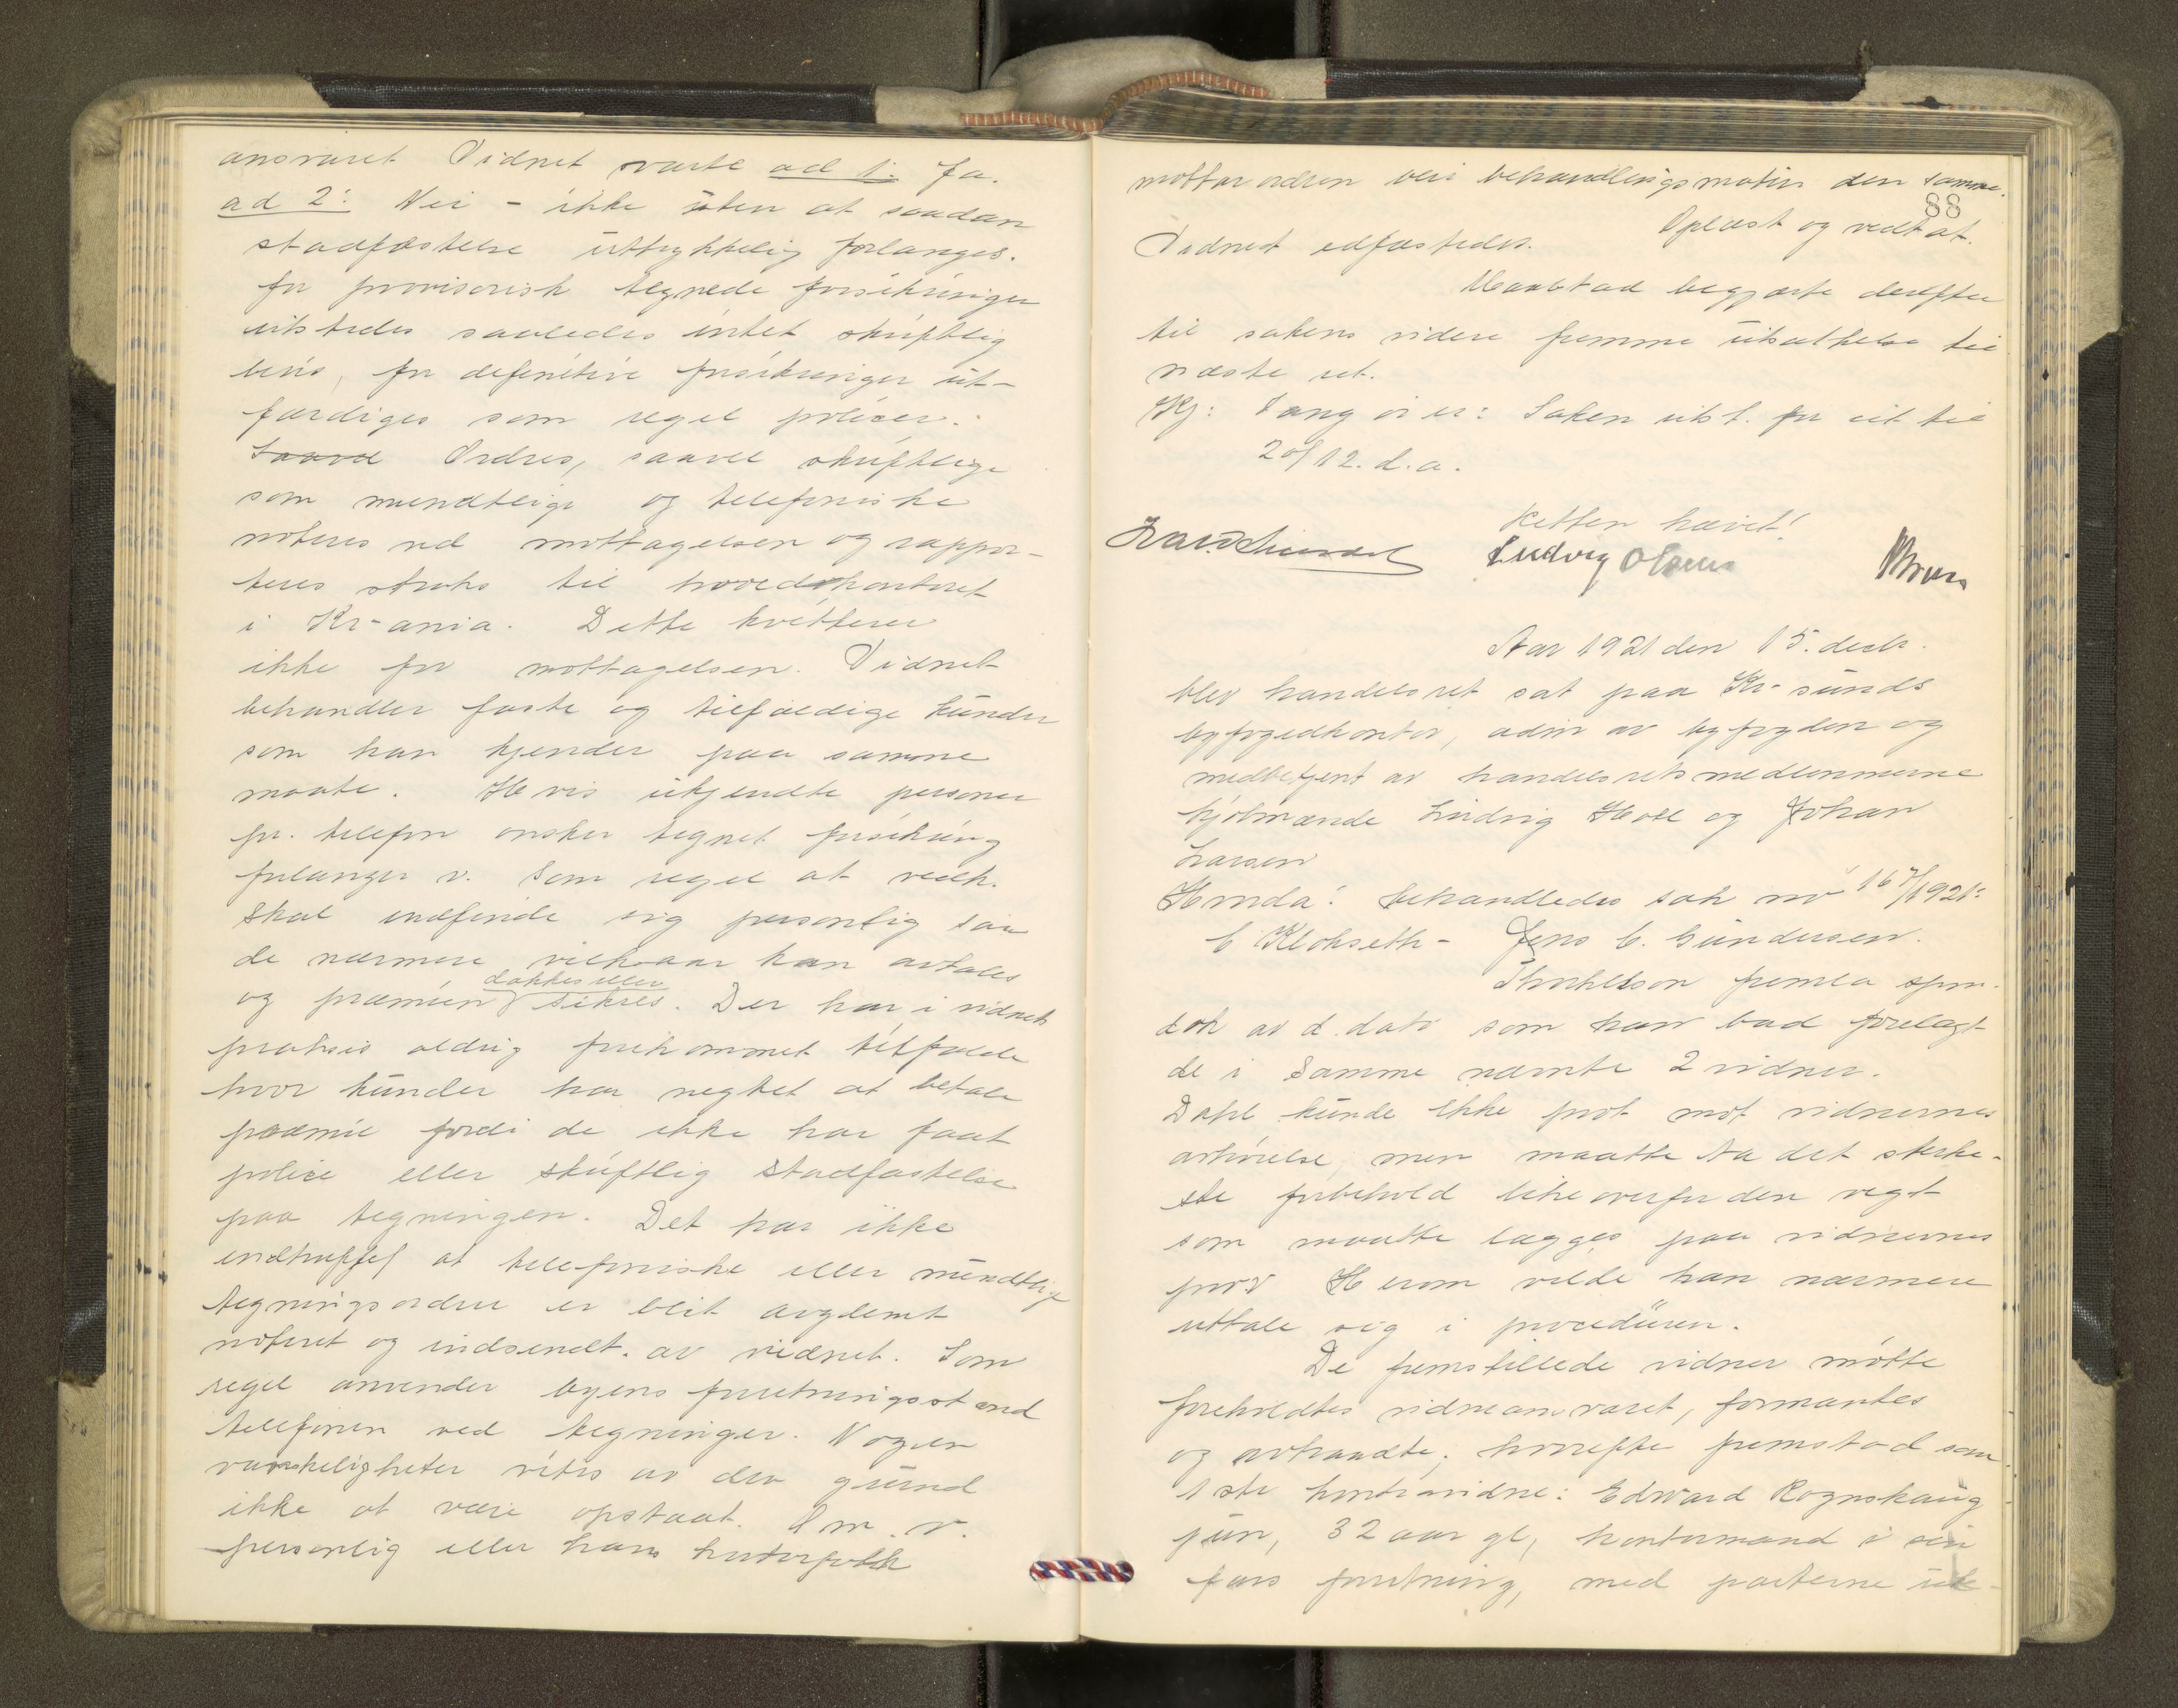 ansvaret Vidnet svarte ad 1: Ja.
ad 2: Nei - ikke uten at saadan
stadfæstelse uttrykkelig forlanges.
for provisorisk tegnede forsikringer
utstedes saaledes intet skriftlig
bevis, for definitive forsikringer ut-
færdiges som regel policer.
Saavel Ordres, saavel skriftlige
som mundtlige og telefoniske
noteres ved mottagelsen og rappor-
teres straks til hovedkontoret
i Kr-ania. Dette kvitterer
ikke for mottagelsen. Vidnet
behandler faste og tilfældige kunder
som han kjender paa samme
maate. Hvis ukjendte personer
pr. telefon ønsker tegnet forsikring
forlanger v. som regel at vedk.
skal indfinde sig personlig saa
de nærmere vilkaar kan avtales
dækkes eller
og præmien sikres. Der har i vidnets
praksis aldrig forekommet tilfælde
hvor kunder har negtet at betale
præmie fordi de ikke har faat
police eller skriftlig stadfæstelse
paa tegningen. Det har ikke
indtruffet at telefoniske eller mundtlige
tegningsordrer er blit avglemt
noteret og indsendt av vidnet. Som
regel anvender byens forretningsstand
telefonen ved tegninger. Nogen
vanskeligheter vites av den grund
ikke at være opstaat. Om v.
personlig eller hans kontorfolk
mottar ordren blir behandlingsmaten den samme.
88
Oplæst og vedtat.
Vidnet edfæstedes.
Maabstad begjærte derefter
til sakens videre fremme utsættelse til
næste ret.
Kj: Eang vi er: Saken uts t. for eit til
20/12. d.a.
Retten hævet!
Ludvig Olsen
Aar 1921 den 15. decbr.
blev handelsret sat paa Kr-sunds
byfogedkontor, adm av byfogden og
medbetjent av handelsretsmedlemmerne
kjøbmænde Ludvig Holl og Johan
Larsen
Hvorda: behandledes sak nr 167/1921:
C Klokseth - Jens C. Gundersen.
Thorkildson fremla spm.
dok av d. dato som han bad forelagt
de i samme nævnte 2 vidner.
Dahl kunde ikke prot mot vidnernes
avhørelse, men maatte ta det sterke-
ste forbehold likeoverfor den vegt
som maatte lægges paa vidnernes
prov Herom vilde han nærmere
uttale sig i proceduren.
De fremstillede vidner møtte
foreholdtes vidneansvaret, formantes
og avhændte; hvorefter fremstod som
1ste kontravidne: Edward Rognskaug
jun, 32 aar gl, kontormand i sin
fars forretning, med parterne ube-